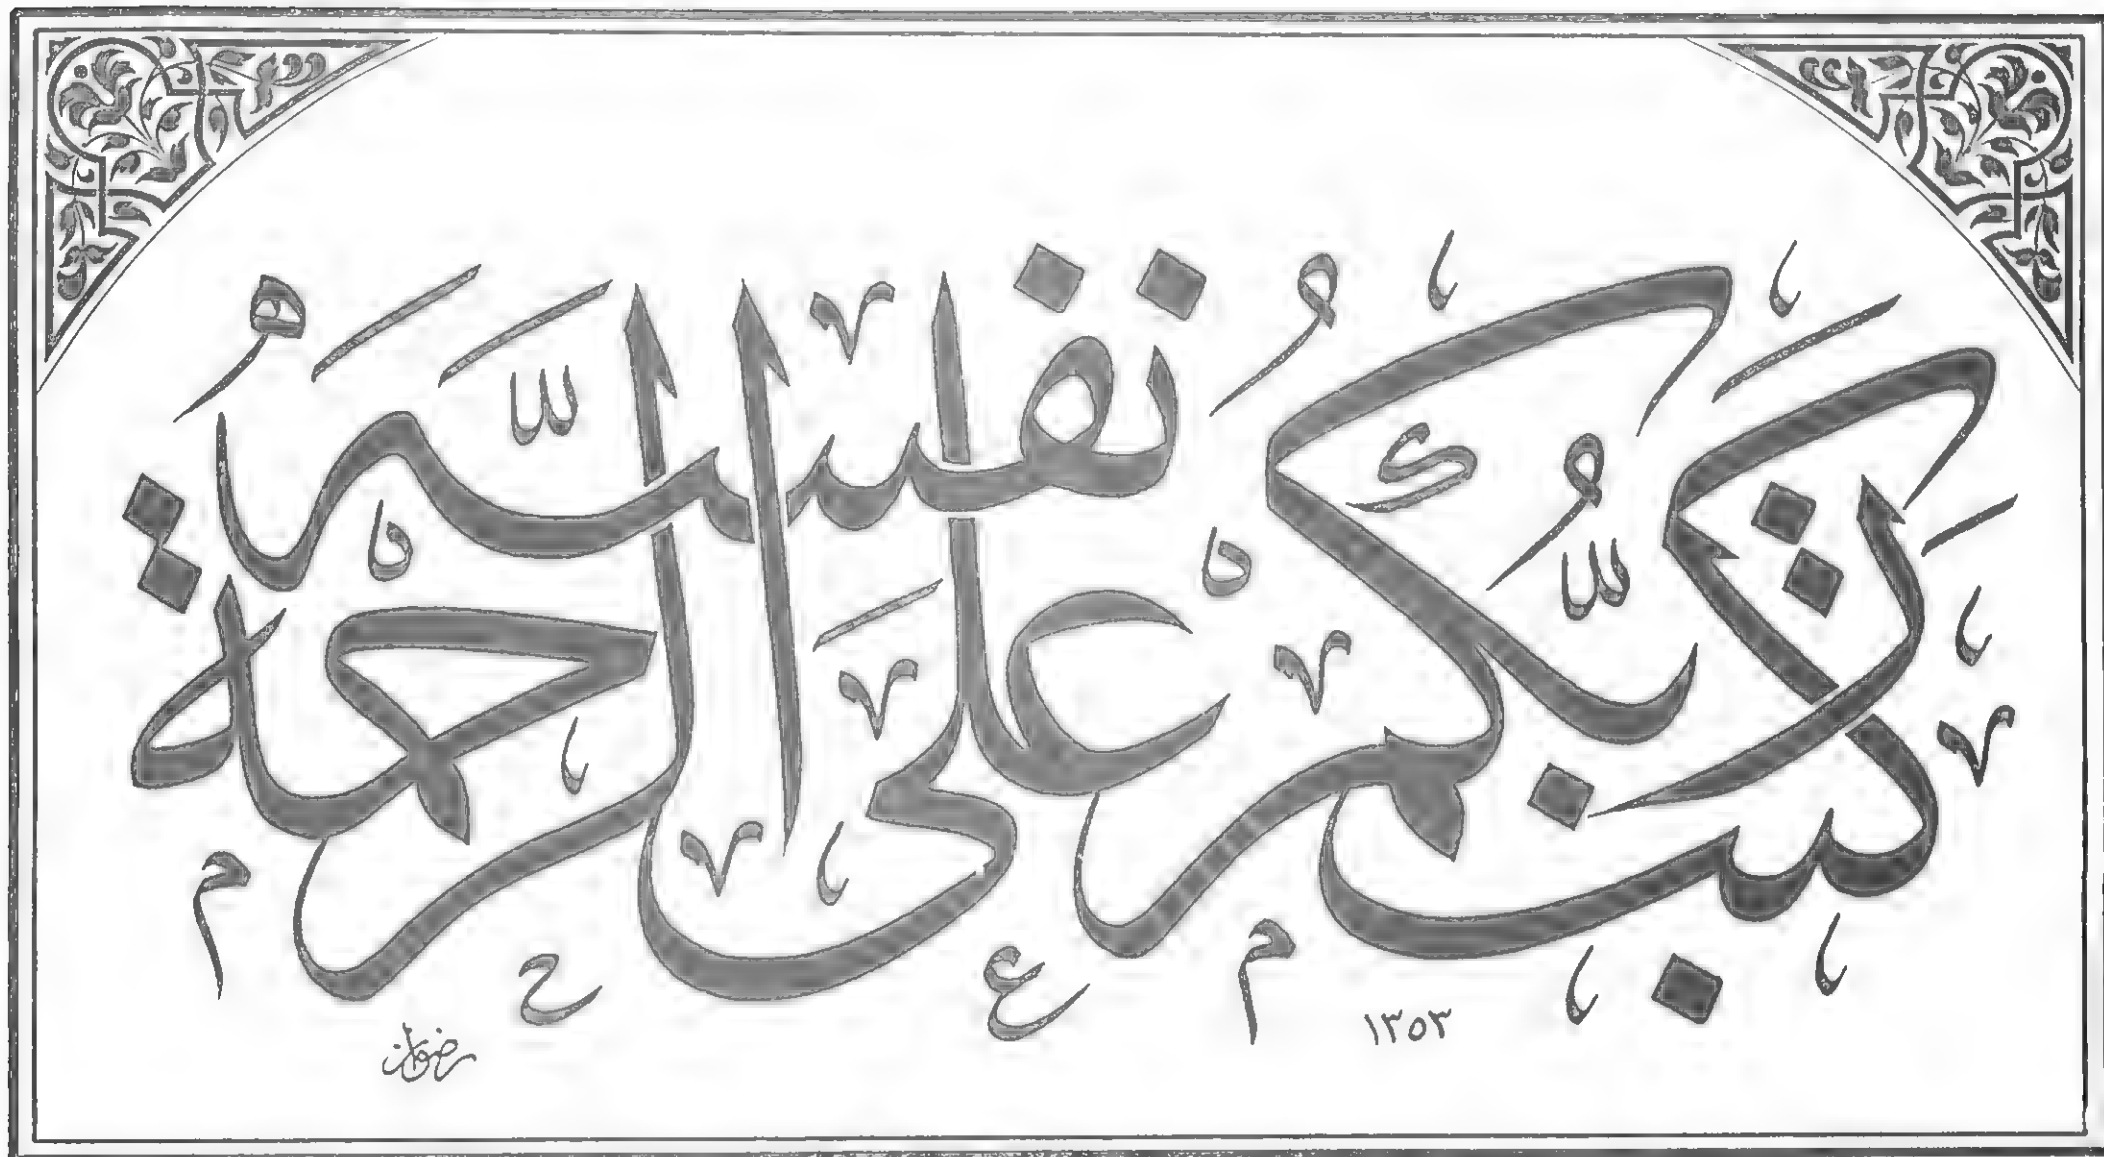 كتب ربكم على نفسه الرحمة
١٣٥٣
رضوان